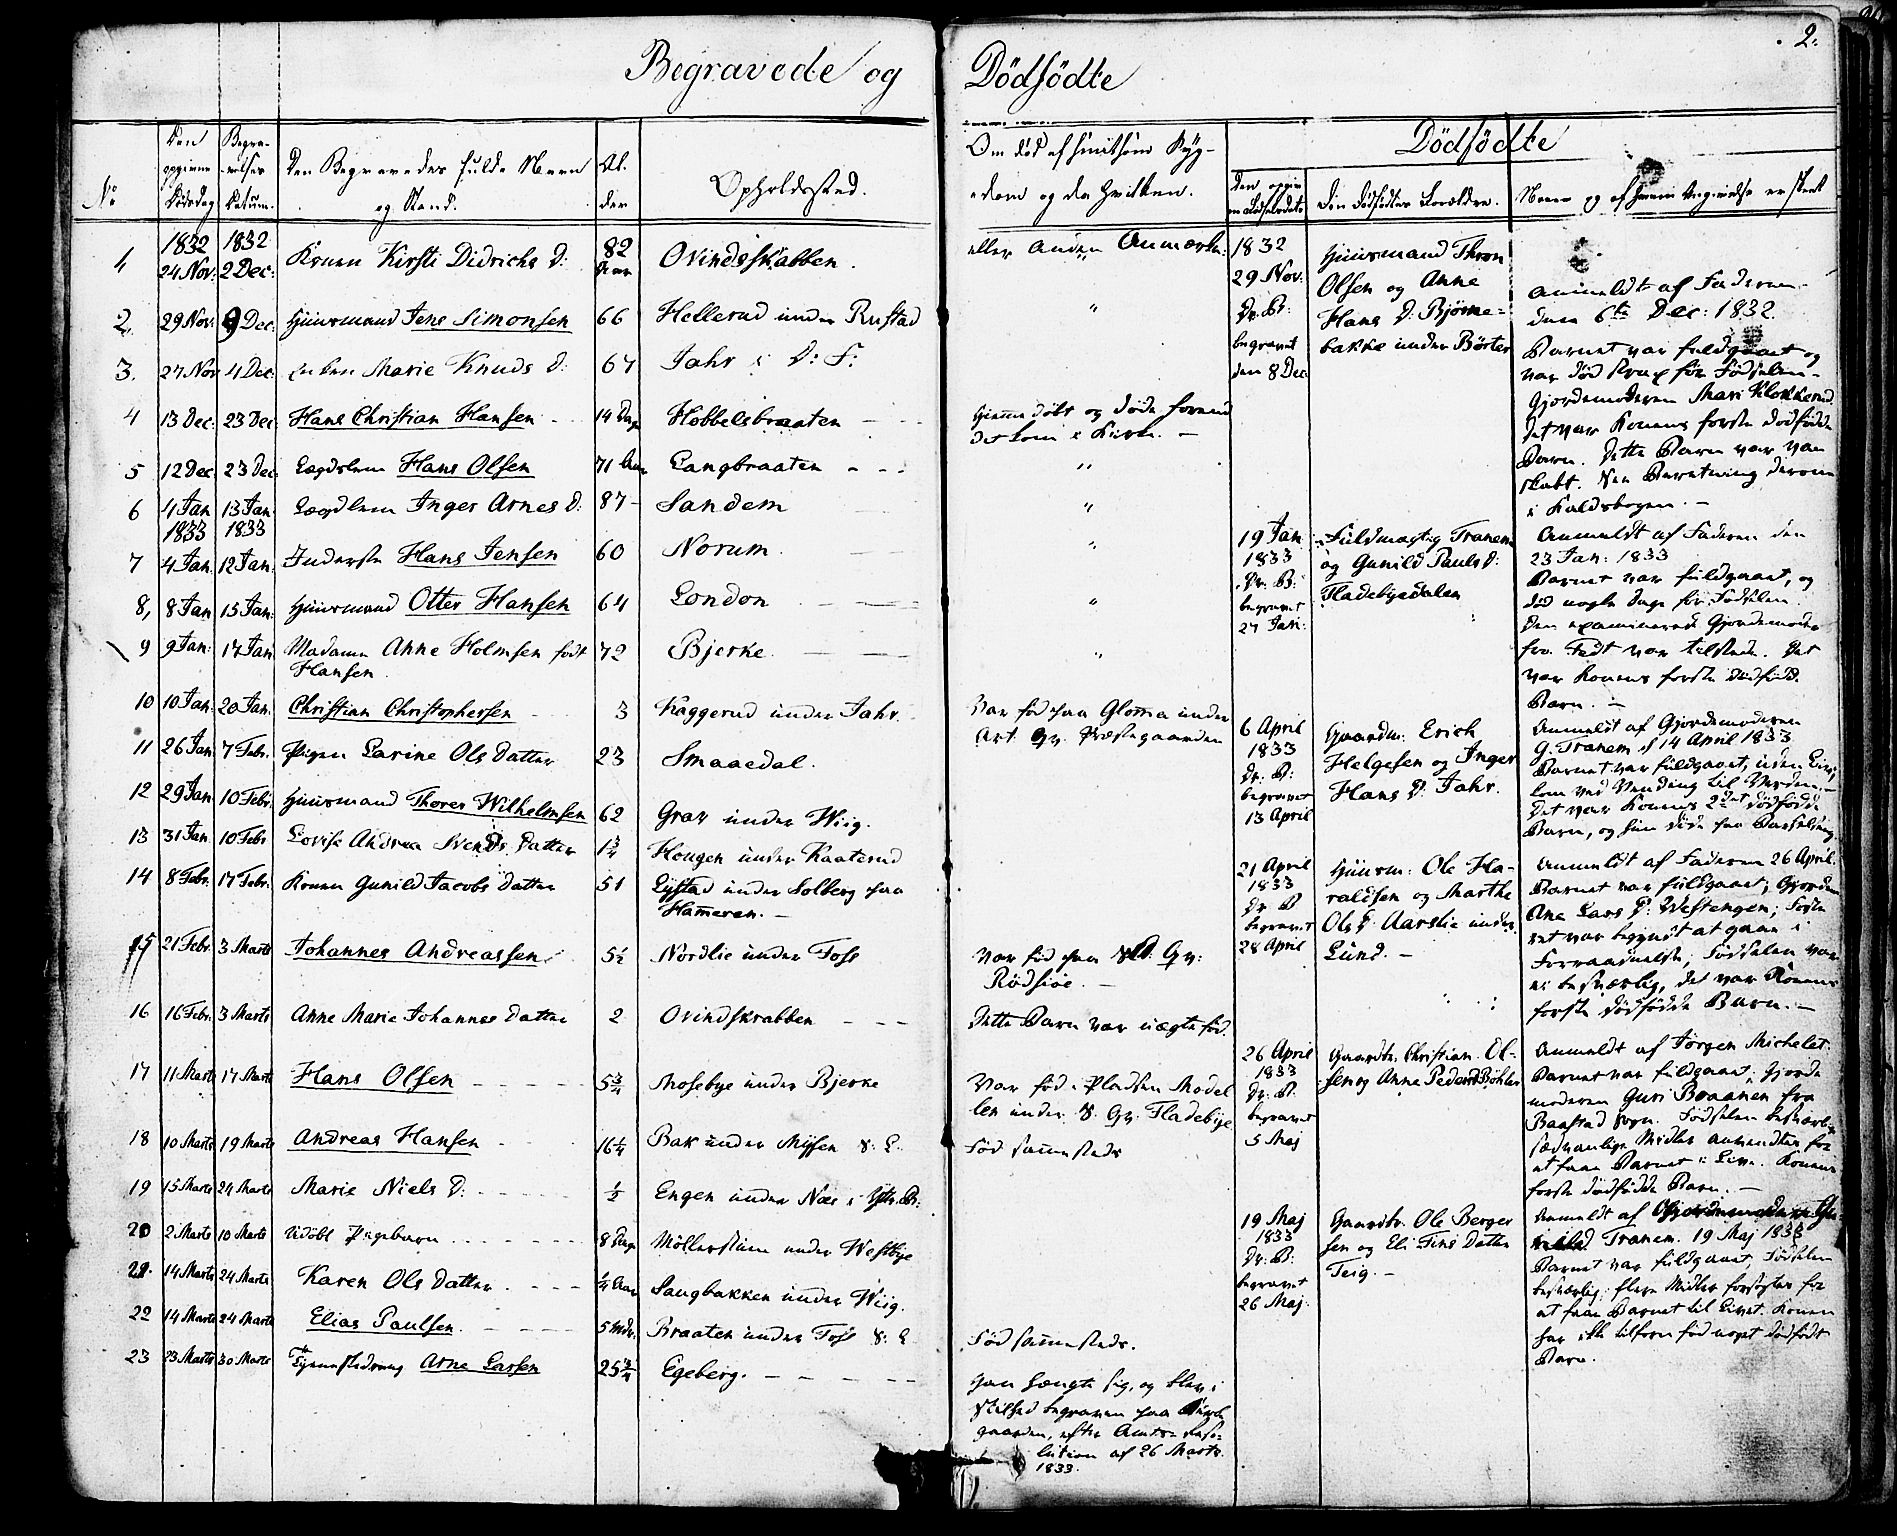 2.
Begravede og Dödfödte
No
Den opgivne Dödsdag
Begravelses Datum.
Den Begravedes fulde Navn og Stand.
Alder
Opholdssted.
Om död af smitsom Sygdom og da hvilken.
eller anden Anmærkn:
Dödfödte
Den opgivne Födselsdato
Den Dödfödtes Forældre.
Naar og af hvem Angivelse er skeet
1 1832 24 Nov: 1832 2 Dec: Konen Kirsti Didrichs D: 82 Aar Ovindsskabben.
2. 29 Nov: 9 Dec: Huusmand Jens Simonsen 66 Hellerud under Rustad "
3. 27 Nov 4 Dec: Enken Marie Knuds D: 67 Jahr i D: S:
4 13 Dec: 23 Dec Hans Christian Hansen 14 Dage Hobbelsbraaten Hjemmedöbt og döde forend det kom i Kirke. —
5 12 Dec 23 Dec Lægdslem Hans Olsen 71 Aar Langbraaten "
6 4 Jan 1833 13 Jan 1833 Lægdslem Inger Arnes D: 87 Sandem "
7 4 Jan. 12 Jan. Inderste Hans Jensen 60 Norum "
8, 8 Jan 15 Jan: Huusmand Otter Hansen 64 London "
9 9 Jan: 17 Jan Madame Anne Holmsen födt Hansen 72 Bjerke "
10 10 Jan. 20 Jan. Christian Christophersen 3 Kaggerud under Jahr. Var föd paa Glomma under Art. Gr. Præstegaarden
11 26 Jan 7 Febr. Pigen Karine Ols Datter 23 Smaaedal.
12 29 Jan 10 Febr. Huusmand Thorer Wilhelmsen 62 Grav under Wiig.
13 31 Jan 10 Febr Lovise Andrea Svends Datter 1¾ Hougen under Kaaterud
14 8 Febr. 17 Febr. Konen Gunild Jacobs Datter 51 Lystad under Solberg paa Hammeren. —
15 21 Febr. 3 Marts Johannes Andreassen 5½ Nordlie under Foss Var föd paa Gr: Rödsiöe. —
16 16 Febr. 3 Marts Anne Marie Johannes Datter 2 Ovindskrabben Dette Barn var uægte föd.
17 11 Marts 17 Marts Hans Olsen 5¾ Mosebye under Bjerke Var föd i Pladsen Modellen under Gr. Fladebye
18 10 Marts 19 Marts Andreas Hansen 16¼ Bak under Missen S: L. Föd sammesteds
19 15 Marts 24 Marts Marie Niels D: ½ Engen under Næs i
20 2 Marts 10 Marts Udöbt Pigebarn 8 Dage Möllerstuen under Westbye
21. 14 Marts 24 Marts Karen Ols Datter ¼ Aar Saugbakken under Wiig.
22 14 Marts 24 Marts Elias Paulsen. 5 Mdr. Braaten under Foss S: L Föd sammesteds.
23 23 Marts 30 Marts Arne Larsen 25¾ Egeberg. Han hængte sig, og blev i Stilhed begraven paa Kirkegaarden, efter Amts-Resolution af 26 Marts 1833.
1832 29 Nov. Dr. B: begravet den 8 Dec:
Huusmand Thron Olsen og Anne Hans D: Björnebakke under Börter
Anmeldt af Faderen den 6te Dec: 1832
Barnet var fuldgaaet og var död strax för Födselen. Gjordemoderen Mari Klokkerud. Det var Konens forste Dödfödte Barn. Dette Barn var vanskabt. See Beretning derom i Kaldsbogen. —
19 Jan 1833 Dr. B: begravet 27 Jan:
Fuldmægtig Tranem og Gunild Pauls D: Fladebyedalen
Anmeldt af Faderen den 23 Jan: 1833
Barnet var fuldgaaet, og död nogle Dage för Födselen. Den examinerede Gjordemoder fra Fedt var tilstede. Det var Konens forste dödfödte Barn. —
6 April 1833 Dr. B: begravet 13 April
Gaardm: Erich Helgesen og Inger Hans D: Jahr.
Anmeldt af Gjordemoderen G. Tranem d 14 April 1833
Barnet var fuldgaaet, uden Liv, kom ved Vending til Verden. — Det var Konens 2det dödfödte Barn, og hun döde paa Barselseng
21 April 1833 Dr. B begravet 28 April
Huusm: Ole Haraldsen og Marthe Ols D: Aarslie under Lund. —
Anmeldt af Faderen 26 April.
Barnet var fuldgaaet; Gjordem: Ane Lars D: Westengen; Fosteret var begyndt at gaae i Forraadnelse, Födselen var ei besværlig, det var Konens forste dödfödte Barn. —
26 April 1833 Dr. B. begravet 5 Maj
Gaardbr. Christian Olsen og Anne Peders D Böhler
Anmeldt af Jörgen Michelet.
Barnet var fuldgaaet; Gjordemoderen Guri Braanen fra Baastad Sogn. Födselen besværlig sædvanlige Midler anvendtes for at faae Barnet i Live. Konens forste dödfödte Barn. —
19 Maj 1833 Dr. B: begravet 26 Maj.
Gaardbr. Ole Bergersen og Eli Fins Datter Teig. —
Anmeldt af Gjordemoderen Gunild Tranem. 19 Maj 1833
Barnet var fuldgaaet, Födselen besværlig; flere Midler forsögtes for at faae Barnet til Livet. Konen har ikke tilforn föd noget dödfödt Barn.